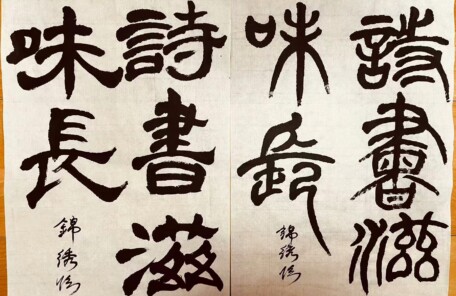 詩書滋
味長
錦綉
詩書滋
味長
錦綉